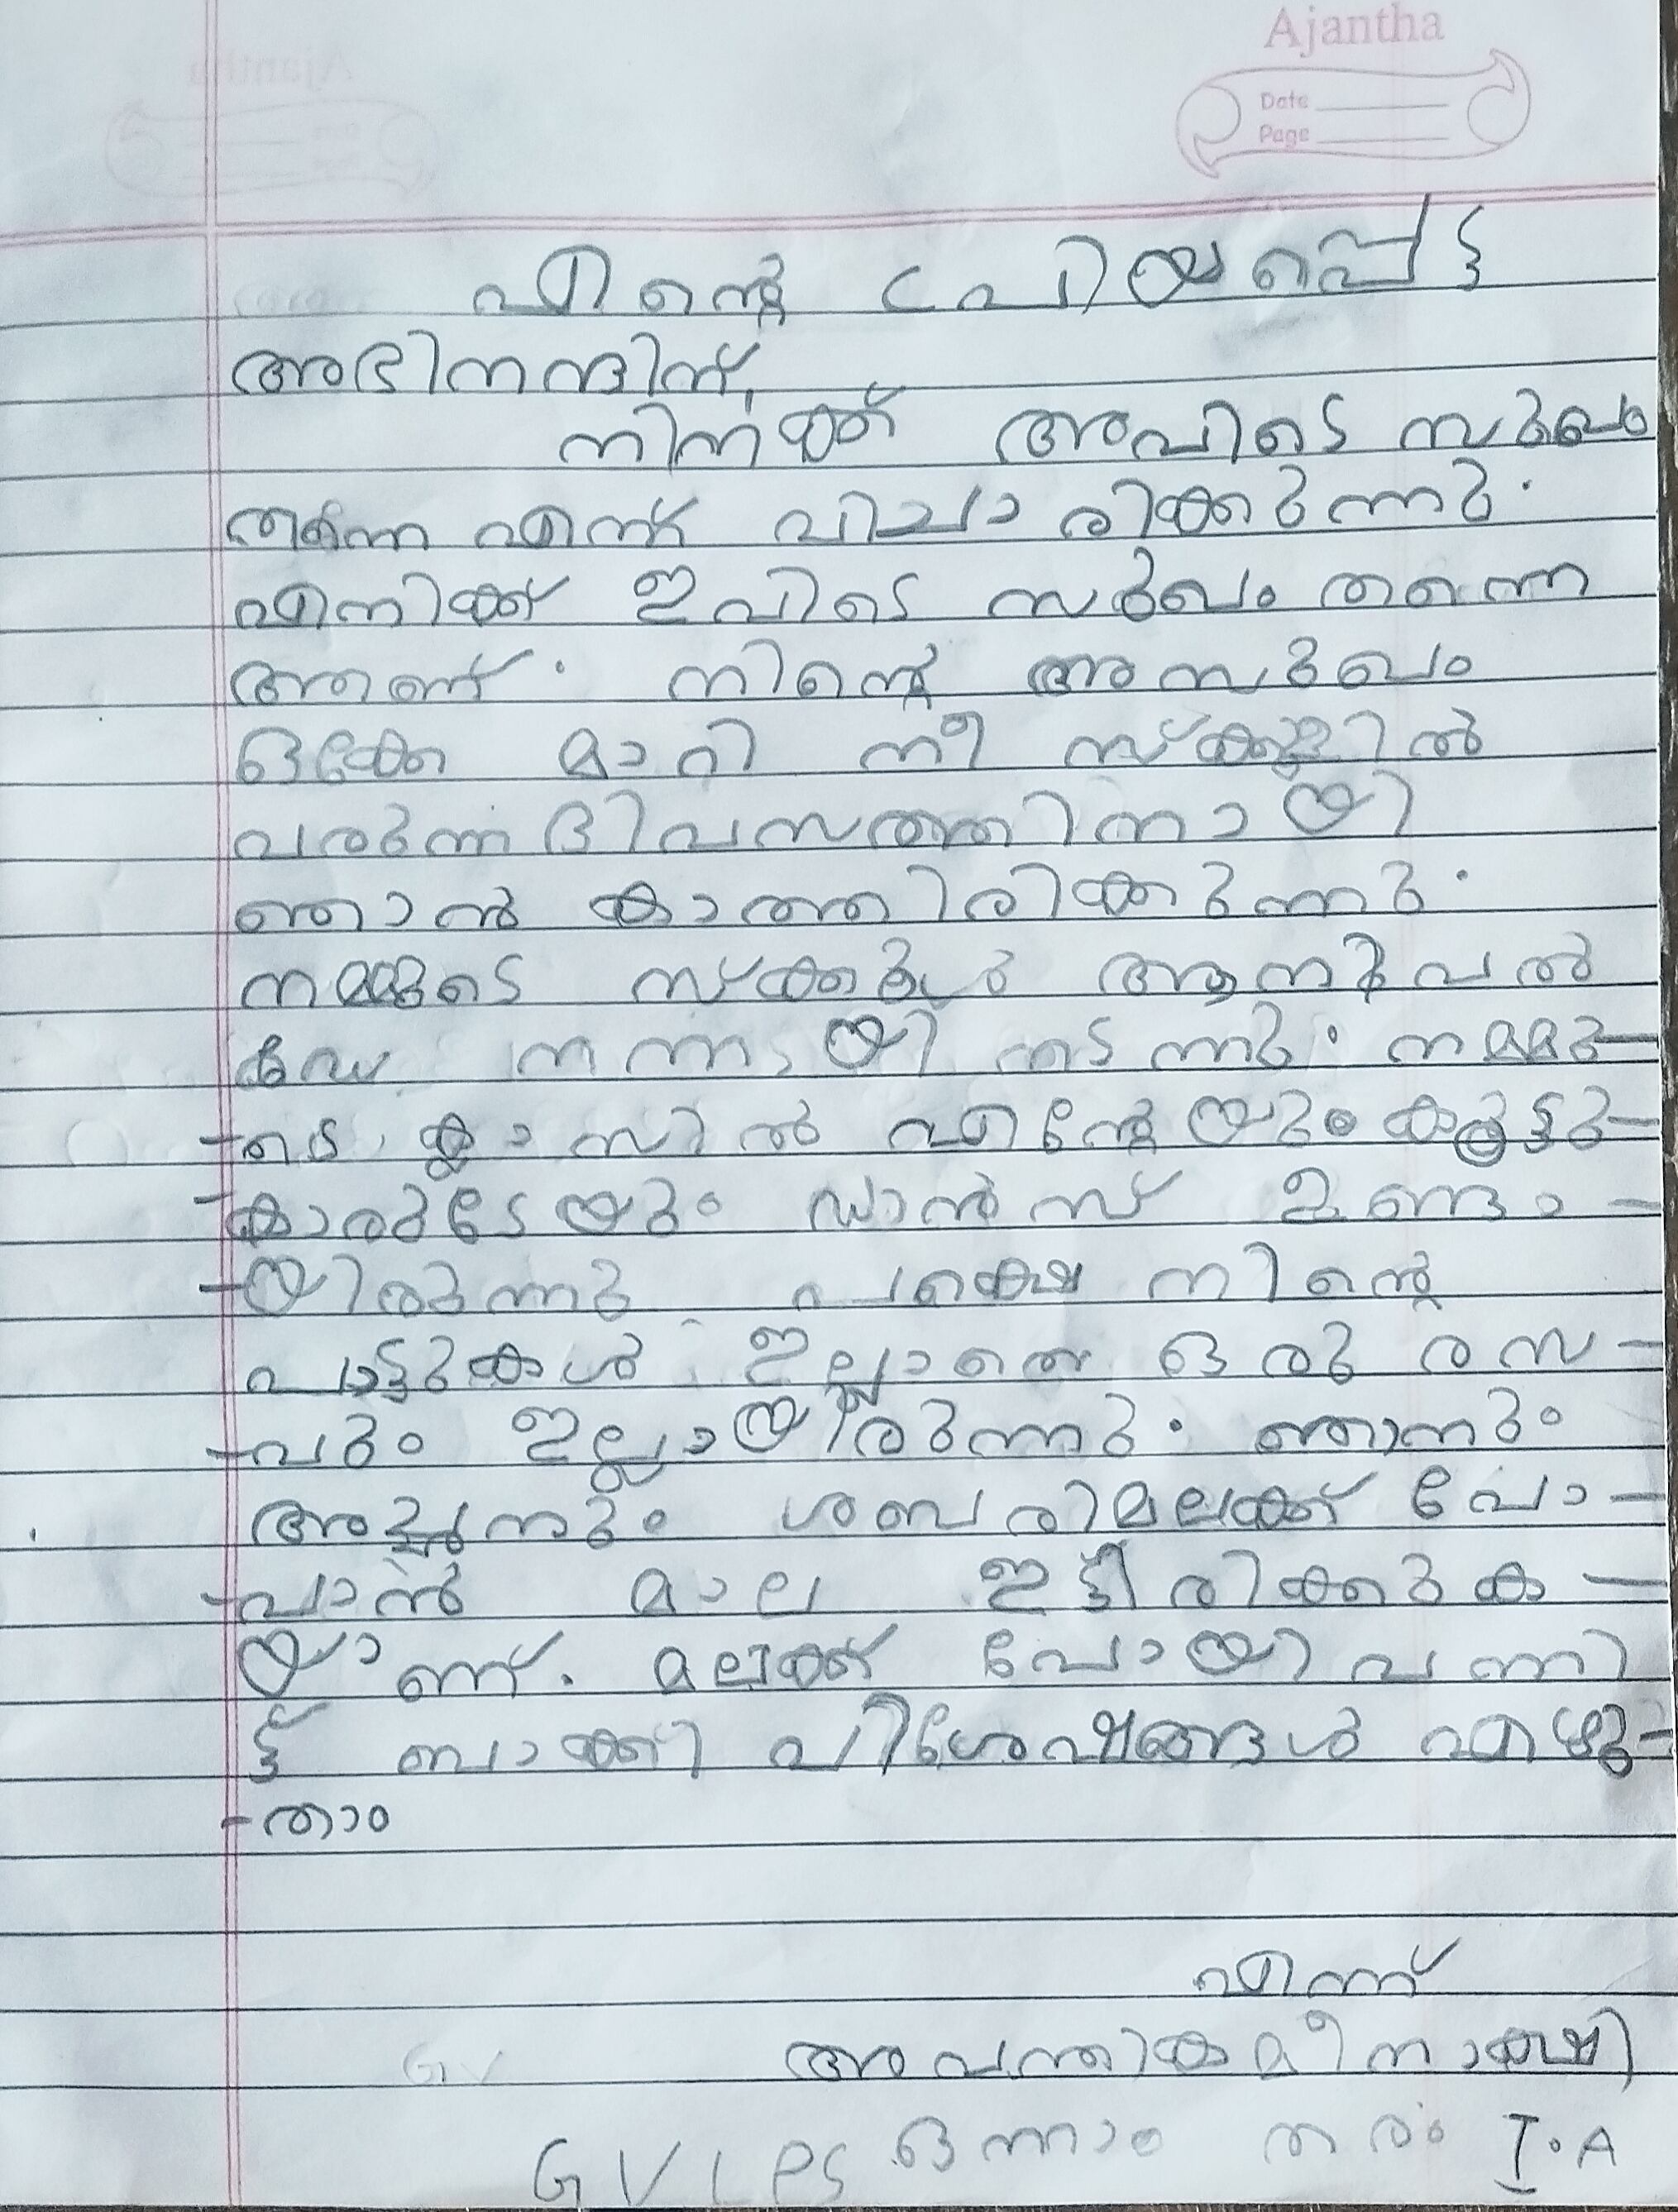 Ajantha
Date
Page
എന്റെ പ്രിയപ്പെട്ട
അഭിനന്ദിന്,
നിനക്ക് അവിടെ സുഖം
തന്നെ എന്ന് വിചാരിക്കുന്നു.
എനിക്ക് ഇവിടെ സുഖം തന്നെ
ആണ്. നിന്റെ അസുഖം
ഒക്കേ മാറി നീ സ്ക്കൂളിൽ
വരുന്ന ദിവസത്തിനായി
ഞാൻ കാത്തിരിക്കുന്നു.
നമ്മുടെ സ്ക്കൂൾ ആനുവൽ
ഡേ നന്നായി നടന്നു. നമ്മു-
-ടെ ക്ലാസിൽ എന്റേയും കൂട്ടു-
-കാരുടേയും ഡാൻസ് ഉണ്ടാ-
-യിരുന്നു പക്ഷെ നിന്റെ
പാട്ടുകൾ ഇല്ലാതെ ഒരു രസ-
-വും ഇല്ലായിരുന്നു. ഞാനും
അച്ഛനും ശബരിമലക്ക് പോ-
-വാൻ മാല ഇട്ടിരിക്കുക-
യാണ്. മലക്ക് പോയി വന്നി
ട്ട് ബാക്കി വിശേഷങ്ങൾ എഴു-
-താം
എന്ന്
അവന്തികമീനാക്ഷി
ഒന്നാം തരം I.A
GVLPS